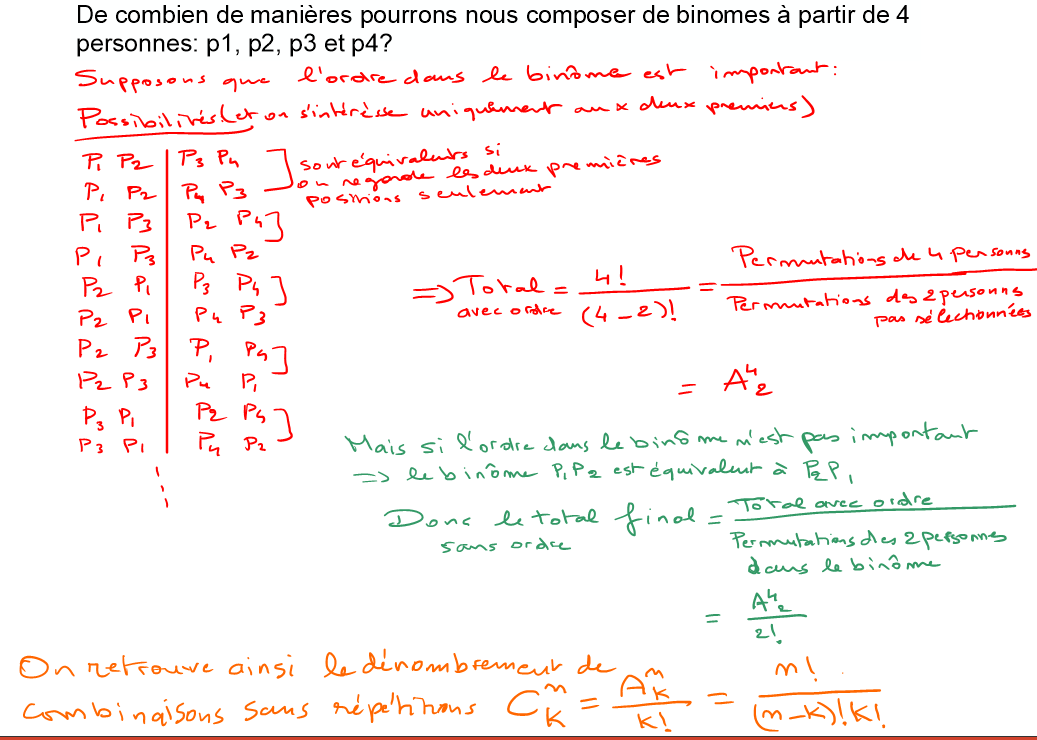 De combien de manières pourrons nous composer de binomes à partir de 4
personnes: p1, p2, p3 et p4?
Supposons que l'ordre dans le binôme est important:
Possibilités (et on s'intérèsse uniquement aux deux premiers)
P1 P2 | P3 P4
P1 P2 | P4 P3
sont équivalents si
on regarde les deux premières
positions seulement
P1 P3 | P2 P4
P1 P3 | P4 P2
P2 P1 | P3 P4
P2 P1 | P4 P3
P2 P3 | P1 P4
P2 P3 | P4 P1
P3 P1 | P2 P4
P3 P1 | P4 P2
⇒ Total avec ordre = 4! / (4-2)! = Permutations de 4 personns / Permutations des 2 personns pas sélectionnées
= A^4_2
Mais si l'ordre dans le binôme n'est pas important
⇒ le binôme P1P2 est équivalent à P2P1
Donc le total final sans ordre = Total avec ordre / Permutations des 2 personnes dans le binôme
= A^4_2 / 2!
On retrouve ainsi le dénombrement de
combinaisons sans répétitions C^n_k = A^n_k / k! = n! / (n-k)! k!